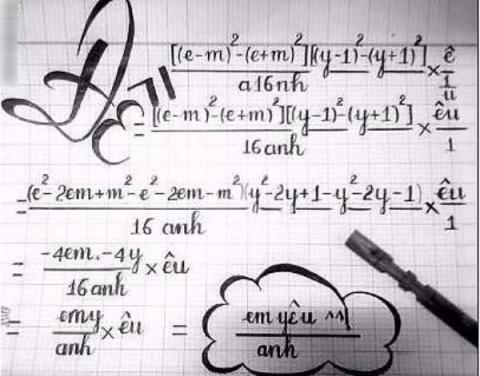 [(e-m)²-(e+m)²][(y-1)²-(y+1)²] / a16nh × ê / 1/u
= [(e-m)²-(e+m)²][(y-1)²-(y+1)²] / 16anh × êu/1
= (e²-2em+m²-e²-2em-m²)(y²-2y+1-y²-2y-1) / 16 anh × êu/1
= -4em.-4y / 16anh × êu
= emy/anh × êu = em yêu ^^ / anh